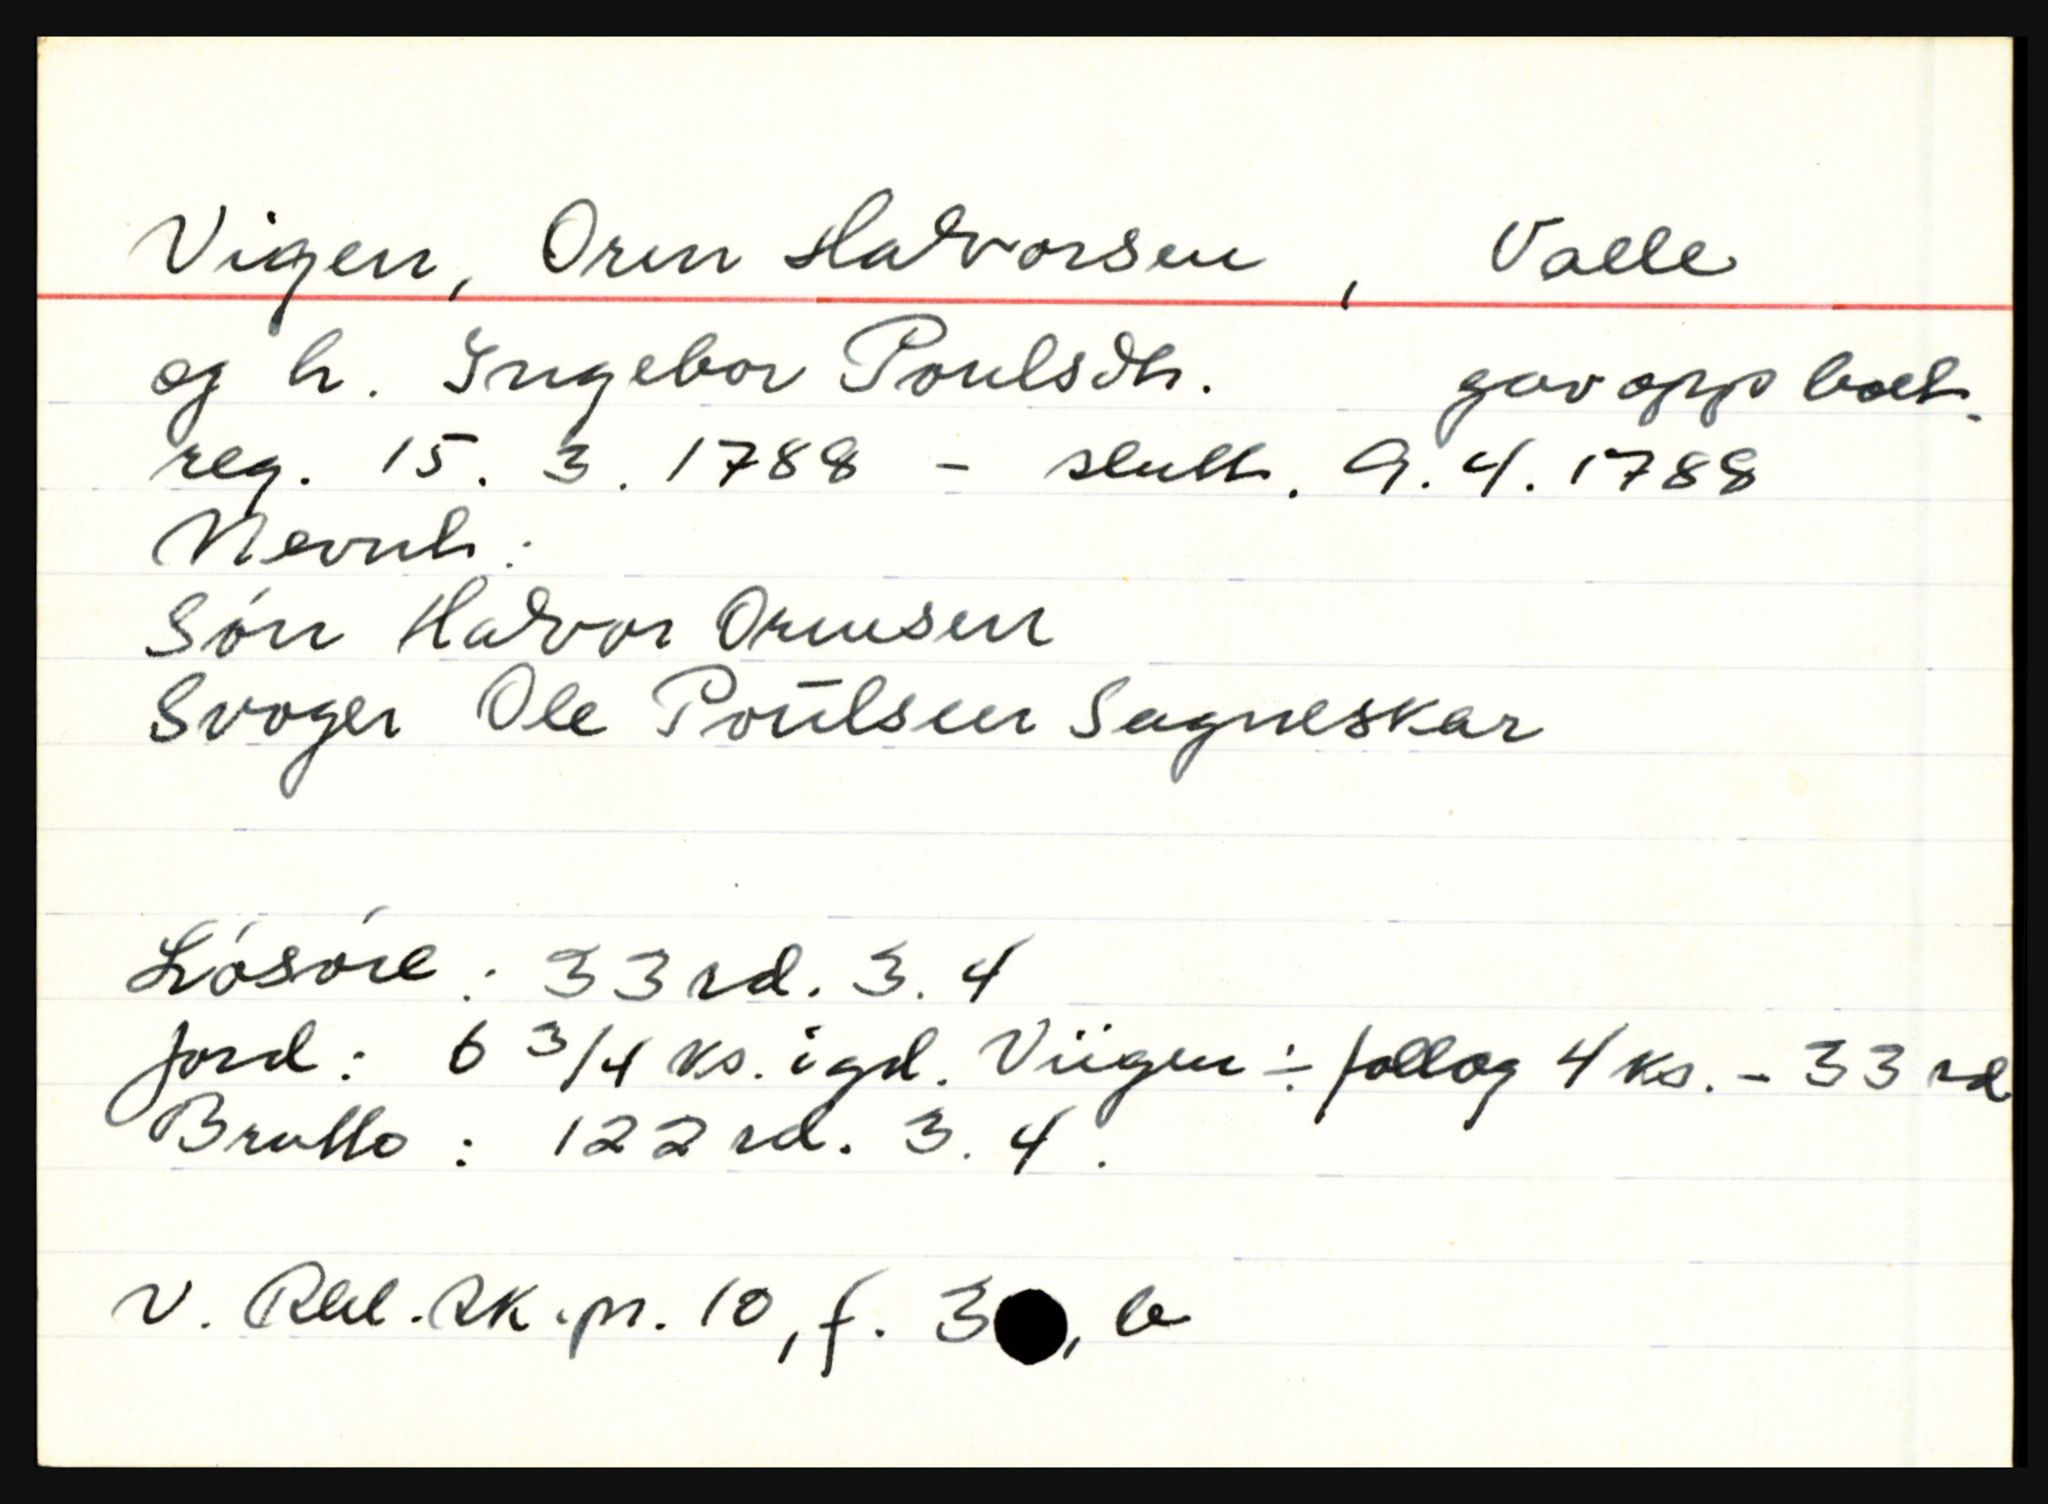 Vigen, Orm Halvorsen, Valle
og h. Ingebor Poulsdt. gav opp boet.
reg. 15. 3. 1788 - slutt. 9. 4. 1788
Nevnt:
Són Halvor Ormsen
Svoger Ole Poūlsen Sagneskar
Lósóre: 33 rd. 3. 4
Jord: 6 3/4 ks. i gd. Viigen ÷ follog 4 ks. - 33 rd
Brutto: 122 rd. 3. 4.
V. Rbl. Sk. pr. 10, f. 3 , b